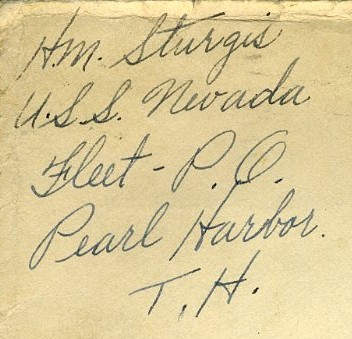 Hm. Sturgis
U.S.S. Nevada
Fleet - P.O.
Pearl Harbor.
T.H.